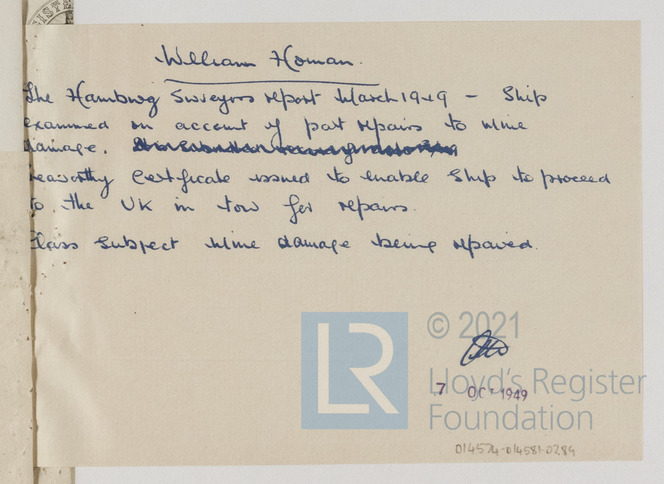 William Homan.
The Hamburg Surveyors report March 1949 - Ship
examined on account of part repairs to Mine
damage.
Seaworthy Certificate issued to enable Ship to proceed
to the UK in tow for repairs.
Class Subject Mine damage being repaired.
LR
© 2021
Lloyd's Register
Foundation
7 OCT 1949
014574-014581-0284